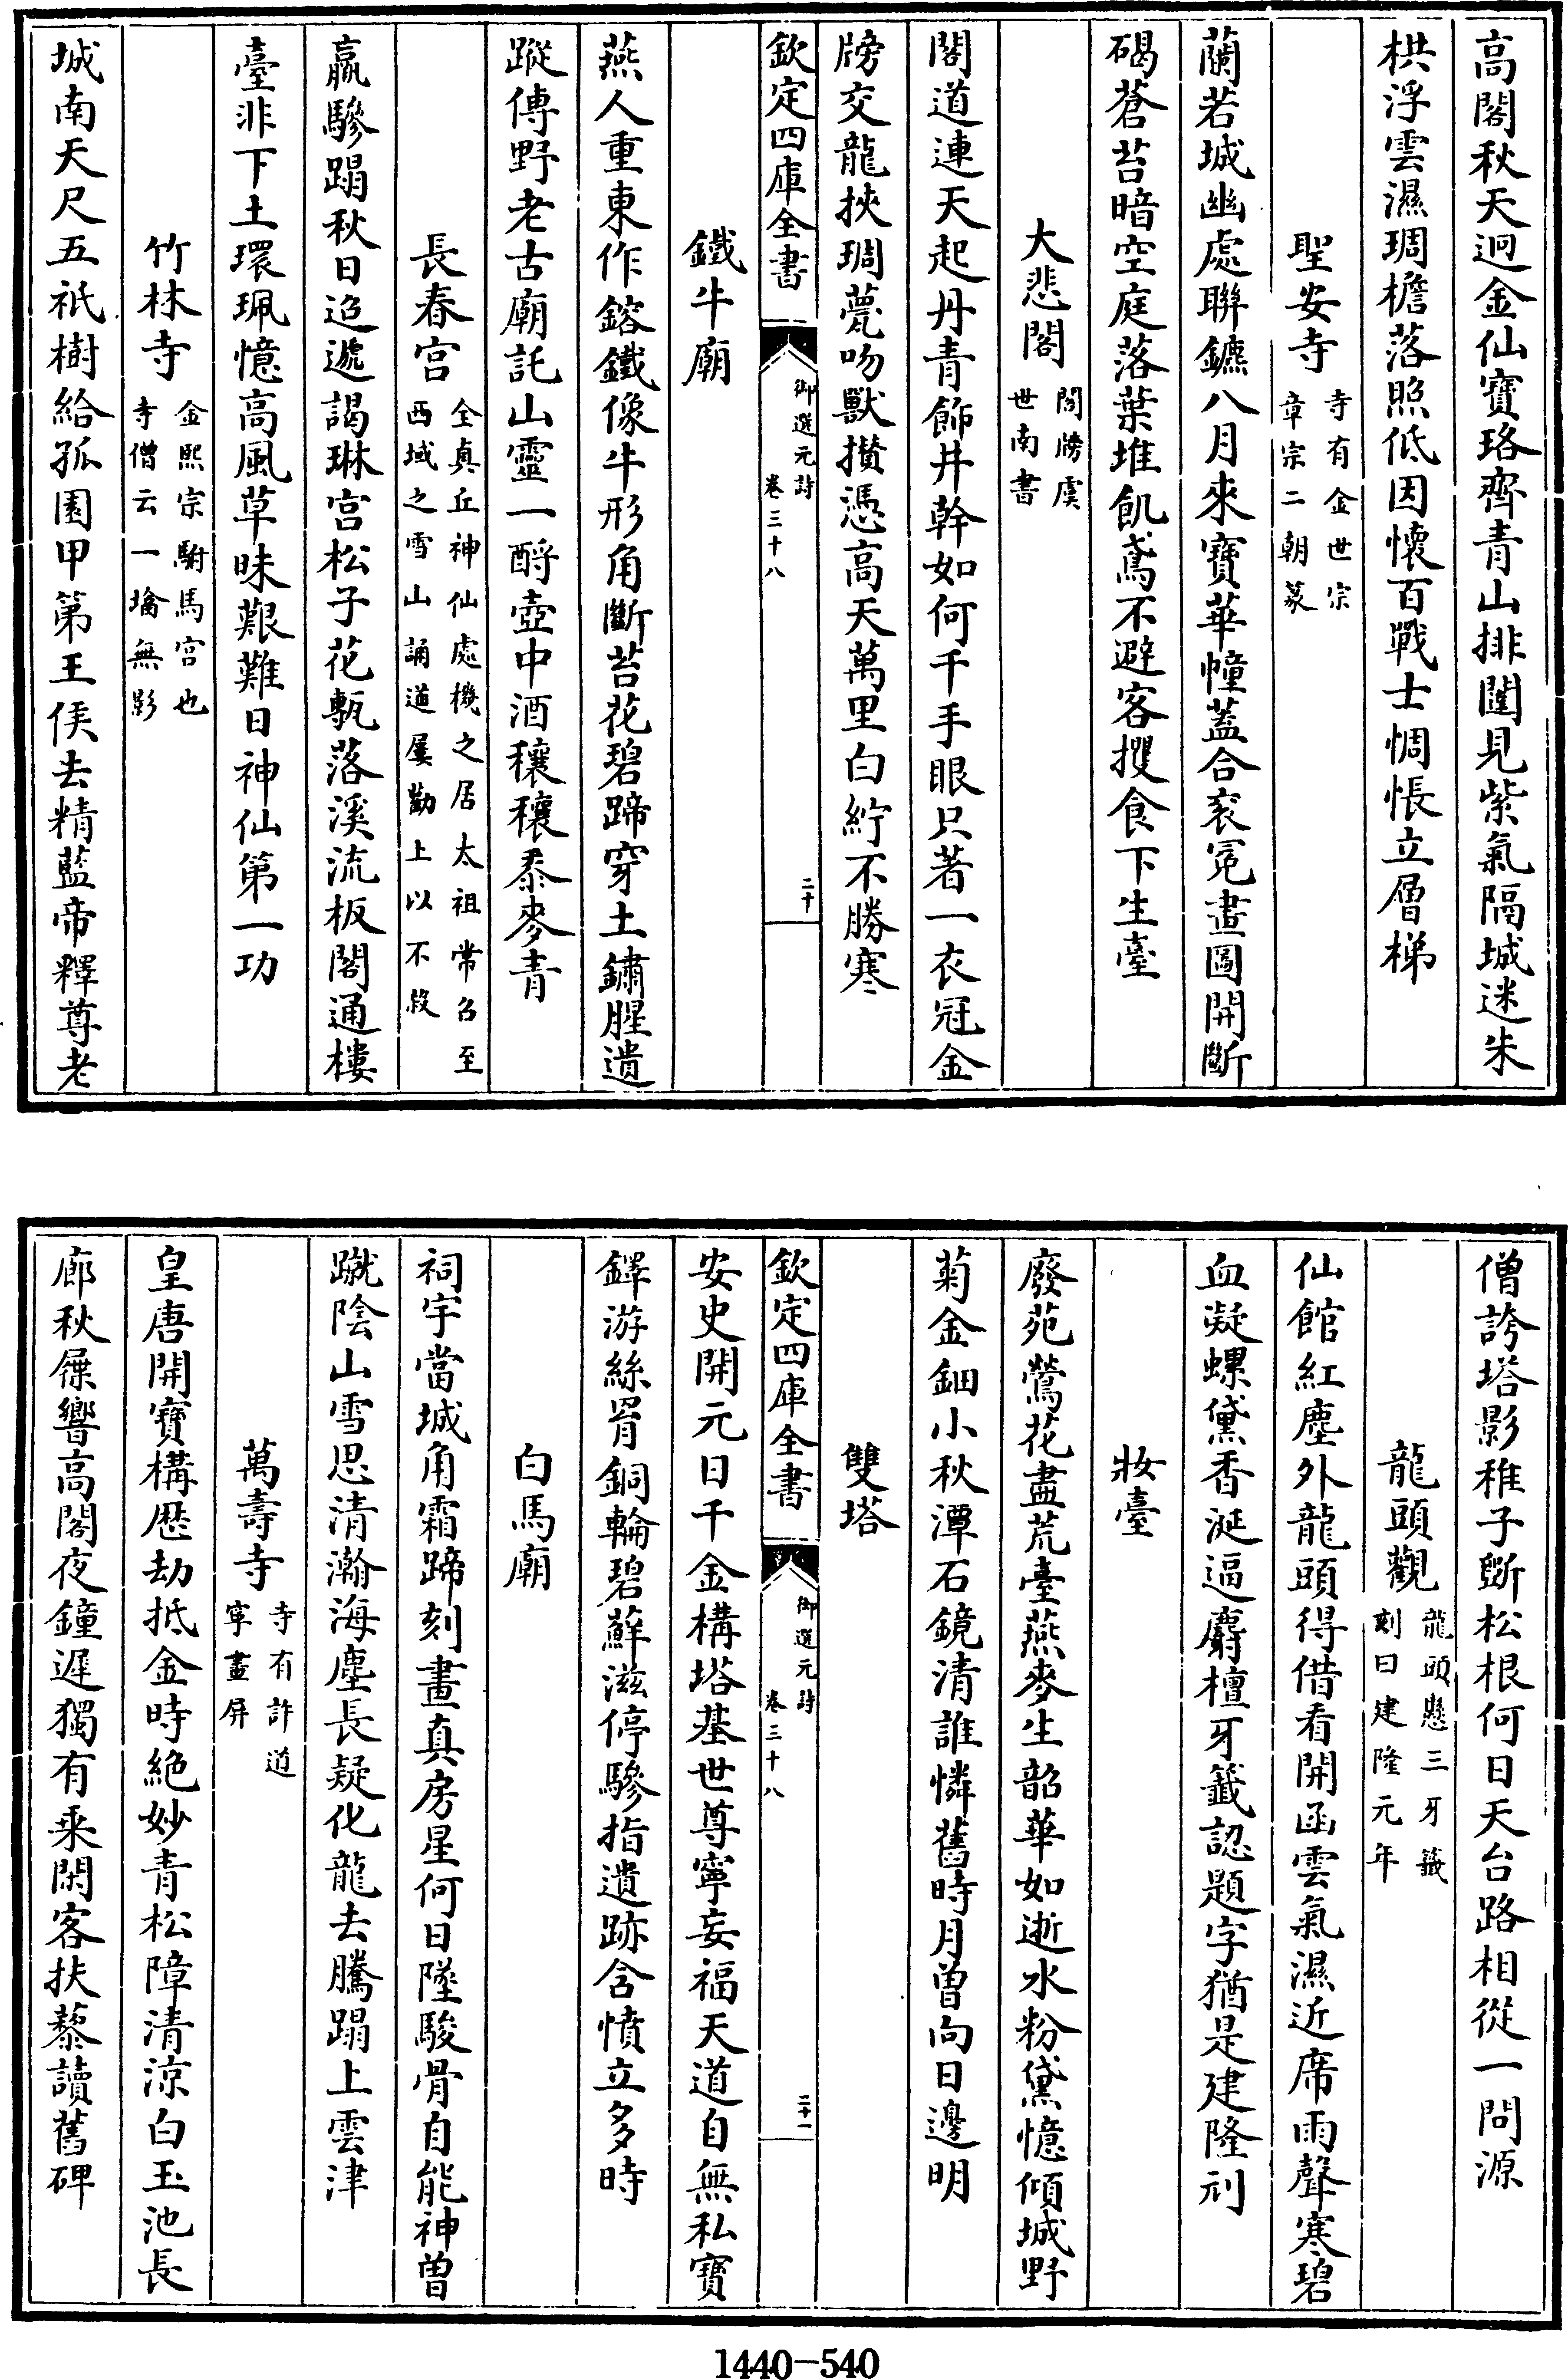 高閣秋天迥金仙寶珞齊青山排闥見紫氣隔城迷朱
栱浮雲濕琱檐落照低因懷百戰士惆悵立層梯
聖安寺
寺有金世宗
章宗二朝篆
蘭若城幽處聯鑣八月來寶華幢蓋合衮冕畫圖開斷
碣蒼苔暗空庭落葉堆飢鳶不避客攫食下生臺
大悲閣
閣牓虞
世南書
閣道連天起丹青飾井幹如何千手眼只著一衣冠金
牓交龍挾琱甍吻獸攅憑高天萬里白紵不勝寒
欽定四庫全書
御選元詩
卷三十八
二十
鐵牛廟
燕人重東作鎔鐵像牛形角斷苔花碧蹄穿土鏽腥遺
蹤傳野老古廟託山靈一酹壺中酒穰穰黍麥青
長春宫
全真丘神仙處機之居太祖常召至
西域之雪山講道屢勸上以不殺
羸驂蹋秋日迢遞謁琳宫松子花甎落溪流板閣通樓
臺非下土環珮憶高風草昧艱難日神仙第一功
竹林寺
金熙宗駙馬宫也
寺僧云一墖無影
城南天尺五祇樹給孤園甲第王侯去精藍帝釋尊老
僧誇塔影稚子斵松根何日天台路相從一問源
龍頭觀
龍頭懸三牙籤
刻曰建隆元年
仙館紅塵外龍頭得借看開函雲氣濕近席雨聲寒碧
血凝螺黛香涎逼麝檀牙籤認題字猶是建隆刋
妝臺
廢苑鶯花盡荒臺燕麥生韶華如逝水粉黛憶傾城野
菊金鈿小秋潭石鏡清誰憐舊時月曽向日邊明
雙塔
欽定四庫全書
御選元詩
卷三十八
二十一
安史開元日千金構塔基世尊寧妄福天道自無私寶
鐸游絲罥銅輪碧蘚滋停驂指遺跡含憤立多時
白馬廟
祠宇當城角霜蹄刻畫真房星何日墜駿骨自能神曽
蹴陰山雪思清瀚海塵長疑化龍去騰蹋上雲津
萬壽寺
寺有許道
寜畫屏
皇唐開寶構厯劫抵金時絶妙青松障清凉白玉池長
廊秋屧響高閣夜鐘遲獨有乘閑客扶藜讀舊碑
1440—540